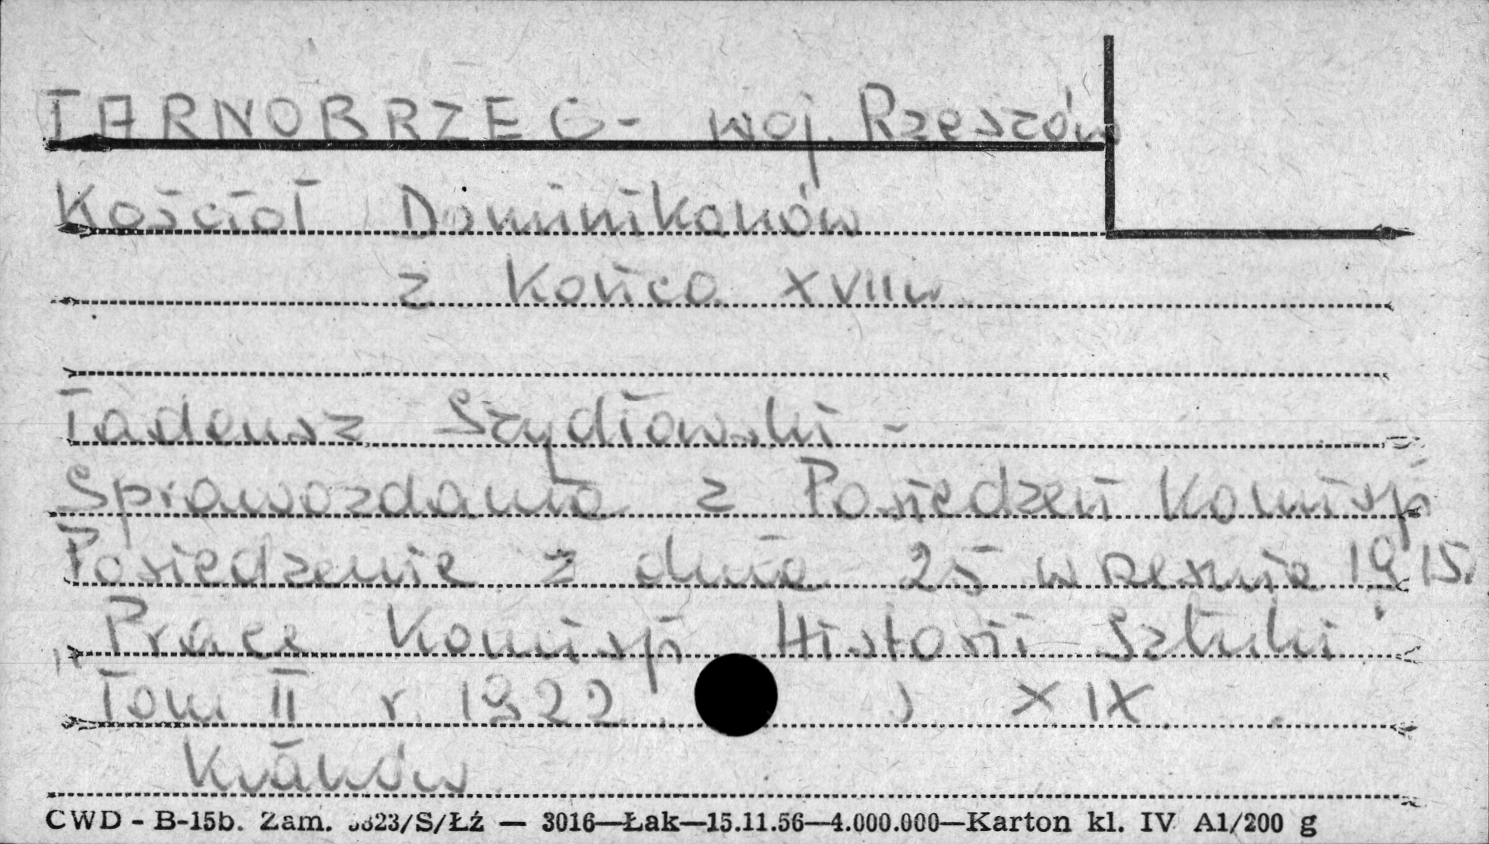 TARNOBRZEG - woj. Rzeszów
Kościoł Dominikanów
z końca XVII w.
Tadeusz Szydłowski -
Sprawozdania z Posiedzeń Komisji
Posiedzenie z dnia 25 września 1915.
"Prace Komisji Historii Sztuki"
Tom II r. 1922. XIX.
Kraków
CWD - B-15b. Zam. 3823/S/Łż — 3016—Łak—15.11.56—4.000.000—Karton kl. IV A1/200 g